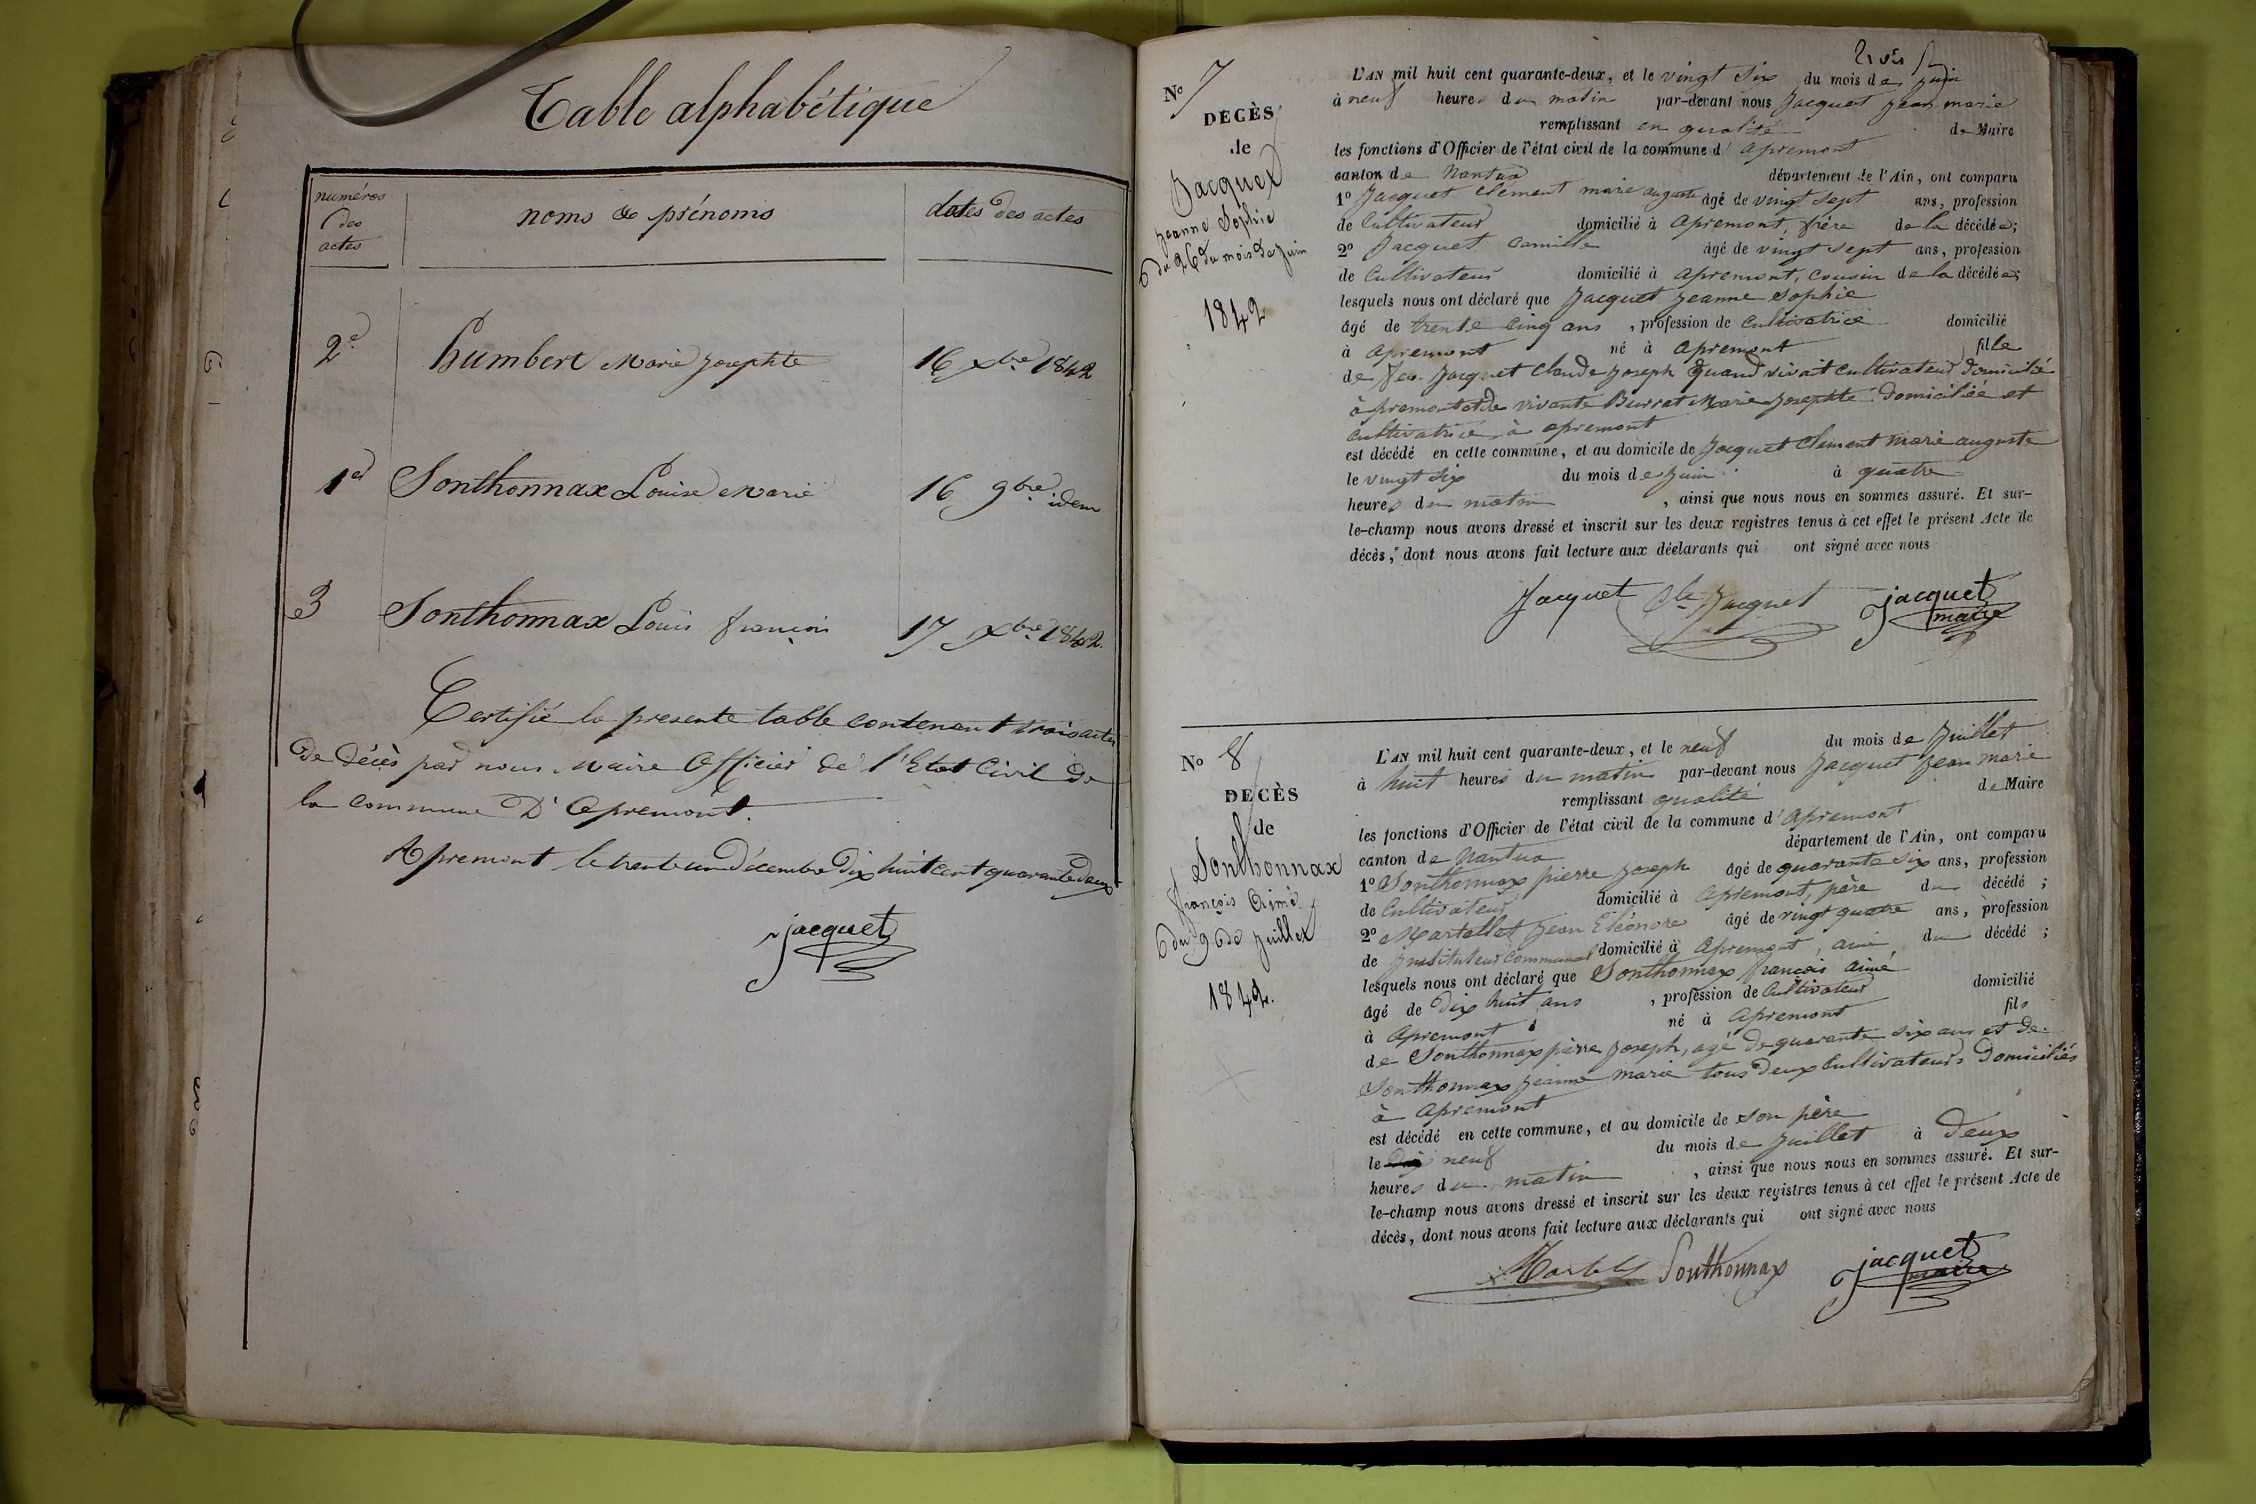 Table alphabétique
numéros des actes
noms & prénoms
dates des actes
2e Humbert Marie Josephte 16 xbre 1842
1er Sonthonnax Louise Marie 16 9bre idem
3 Sonthonnax Louis françois 17 xbre 1842.
Certifié la presente table contenant trois actes
de décès par nous Maire Officier de l'Etat Civil de
la commune D'Apremont.
Apremont le trente un Décembre Dix huit cent quarante deux
jacquet
No 7
DECÈS
de
Jacquet
jeanne Sophie
du 26 du mois de Juin
1842
L'AN mil huit cent quarante-deux, et le vingt six du mois de juin
à neuf heures du matin par-devant nous Jacquet jean marie
remplissant en qualité de Maire
les fonctions d'Officier de l'état civil de la commune d'apremont
canton de Nantua département de l'Ain, ont comparu
1o Jacquet Clément marie auguste âgé de vingt sept ans, profession
de Cultivateur domicilié à apremont, frère de la décédée;
2o Jacquet Camille âgé de vingt sept ans, profession
de Cultivateur domicilié à apremont, cousin de la décédée;
lesquels nous ont déclaré que Jacquet jeanne Sophie
âgé de trente cinq ans, profession de Cultivatrice domicilié
à apremont né à apremont fille
de feu Jacquet Claude Joseph Quand vivait Cultivateur domicilié
à apremont et de vivante Burret Marie Josephte domiciliée et
Cultivatrice à apremont
est décédé en cette commune, et au domicile de Jacquet Clement marie auguste
le vingt six du mois de juin à quatre
heures du matin, ainsi que nous nous en sommes assuré. Et sur-
le-champ nous avons dressé et inscrit sur les deux registres tenus à cet effet le présent Acte de
décès, dont nous avons fait lecture aux déclarants qui ont signé avec nous
Jacquet Cle Jacquet jacquet
maire
No 8
DECÈS
de
Sonthonnax
françois Aimé
du 9 de Juillet
1842.
L'AN mil huit cent quarante-deux, et le neuf du mois de Juillet
à huit heures du matin par-devant nous Jacquet jean marie
remplissant qualité de Maire
les fonctions d'Officier de l'état civil de la commune d'apremont
canton de Nantua département de l'Ain, ont comparu
1o Sonthonnax pierre joseph âgé de quarante six ans, profession
de Cultivateur domicilié à apremont, père du décédé;
2o Martellet Jean Eléonore âgé de vingt quatre ans, profession
de instituteur communal domicilié à apremont, ami du décédé;
lesquels nous ont déclaré que Sonthonnax françois aimé
âgé de dix huit ans, profession de Cultivateur domicilié
à apremont né à apremont fils
de Sonthonnax pierre joseph, agé de quarante six ans et de
Sonthonnax jeanne marie tous deux Cultivateurs domiciliés
à apremont
est décédé en cette commune, et au domicile de son père
le neuf du mois de juillet à deux
heures du matin, ainsi que nous nous en sommes assuré. Et sur-
le-champ nous avons dressé et inscrit sur les deux registres tenus à cet effet le présent Acte de
décès, dont nous avons fait lecture aux déclarants qui ont signé avec nous
Sonthonnax jacquet
maire